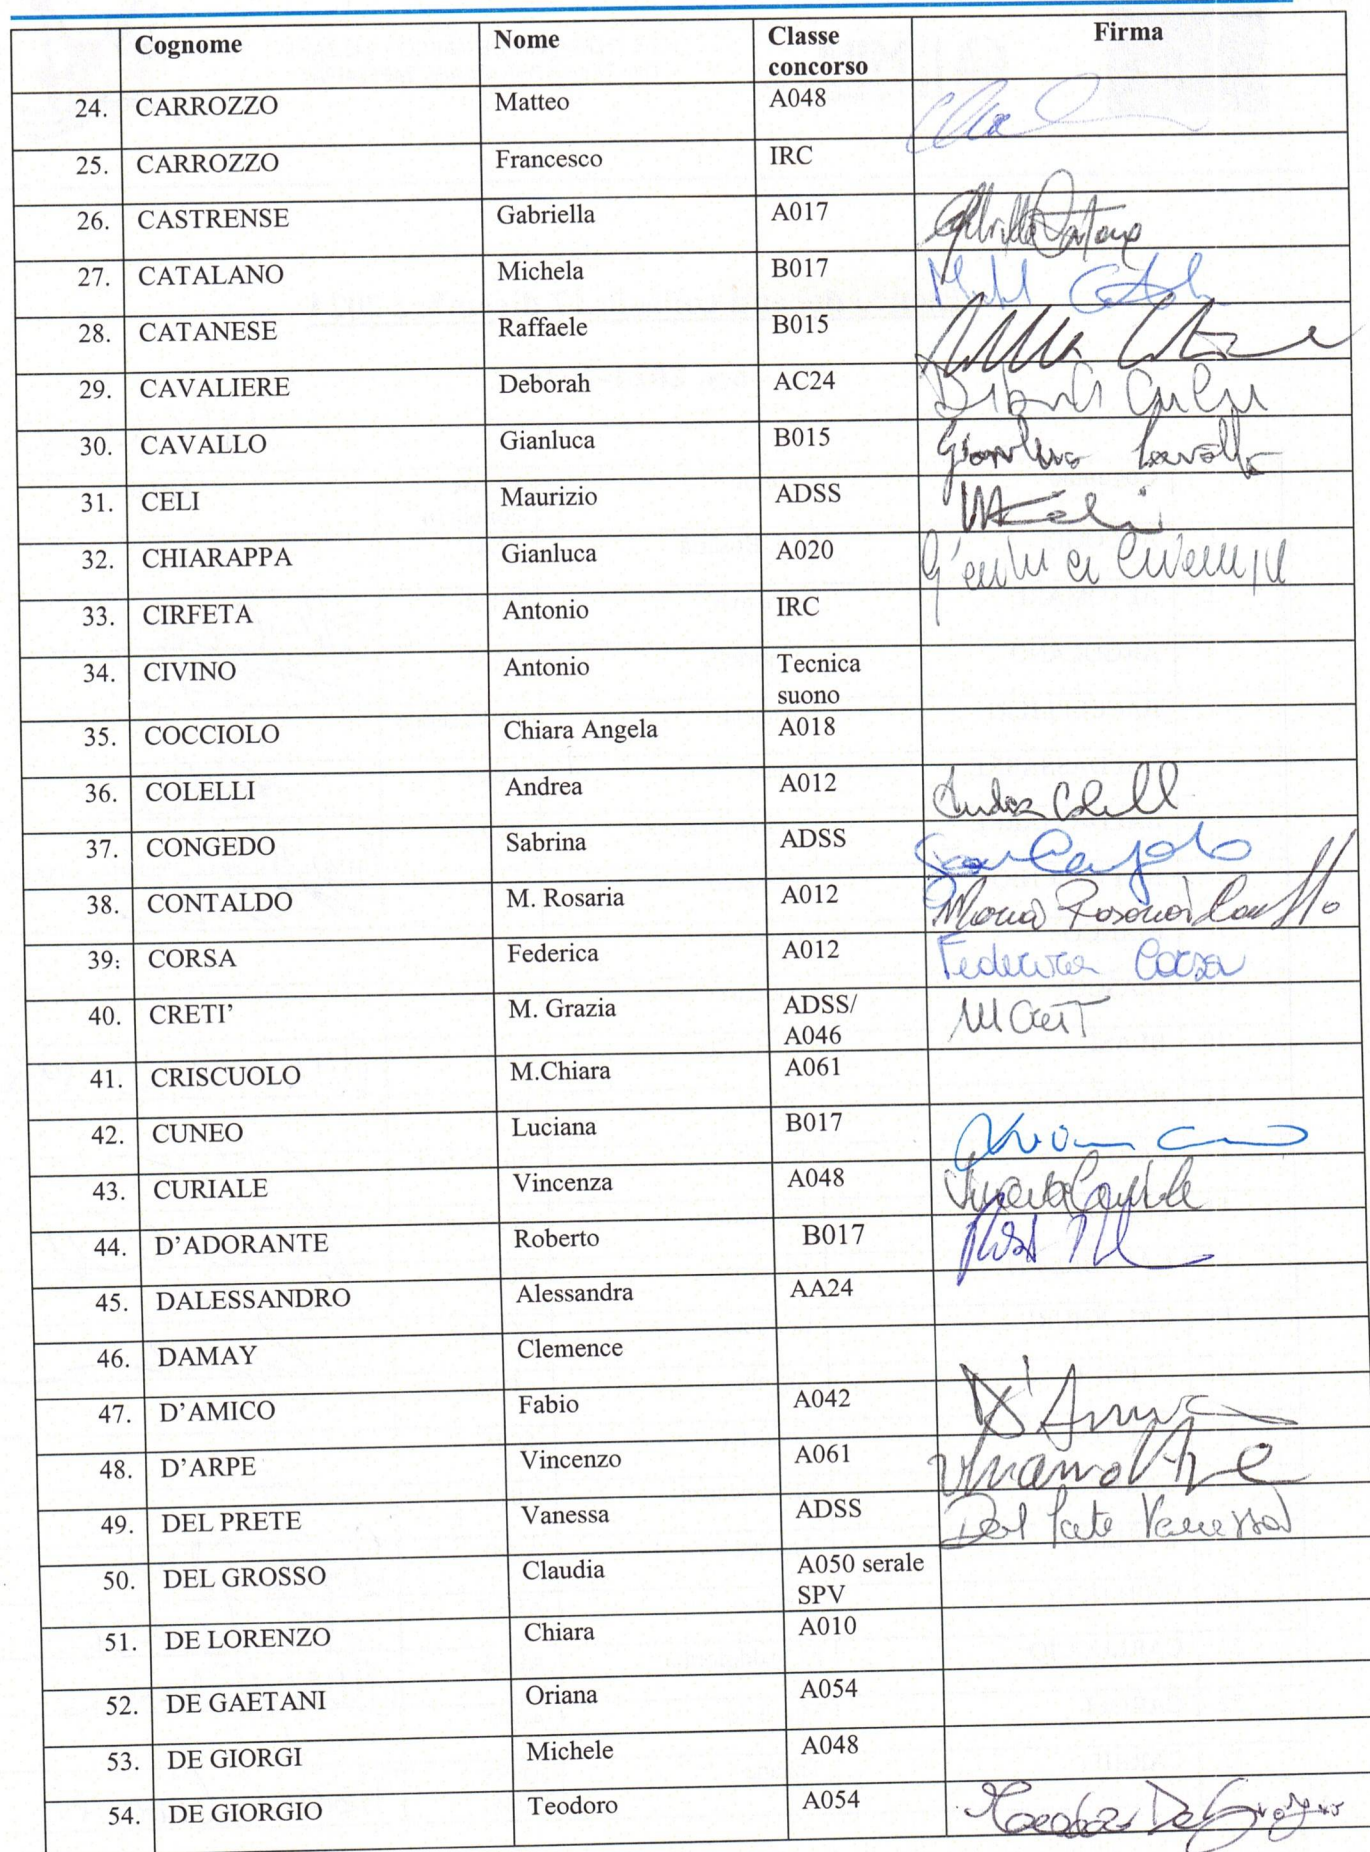 Cognome Nome Classe concorso Firma
24. CARROZZO Matteo A048
25. CARROZZO Francesco IRC
26. CASTRENSE Gabriella A017
27. CATALANO Michela B017
28. CATANESE Raffaele B015
29. CAVALIERE Deborah AC24
30. CAVALLO Gianluca B015 Gianluca Cavallo
31. CELI Maurizio ADSS
32. CHIARAPPA Gianluca A020
33. CIRFETA Antonio IRC
34. CIVINO Antonio Tecnica suono
35. COCCIOLO Chiara Angela A018
36. COLELLI Andrea A012
37. CONGEDO Sabrina ADSS
38. CONTALDO M. Rosaria A012
39. CORSA Federica A012 Federica Corsa
40. CRETI’ M. Grazia ADSS/ A046
41. CRISCUOLO M.Chiara A061
42. CUNEO Luciana B017
43. CURIALE Vincenza A048
44. D’ADORANTE Roberto B017
45. DALESSANDRO Alessandra AA24
46. DAMAY Clemence
47. D’AMICO Fabio A042
48. D’ARPE Vincenzo A061
49. DEL PRETE Vanessa ADSS Del Prete Vanessa
50. DEL GROSSO Claudia A050 serale SPV
51. DE LORENZO Chiara A010
52. DE GAETANI Oriana A054
53. DE GIORGI Michele A048
54. DE GIORGIO Teodoro A054